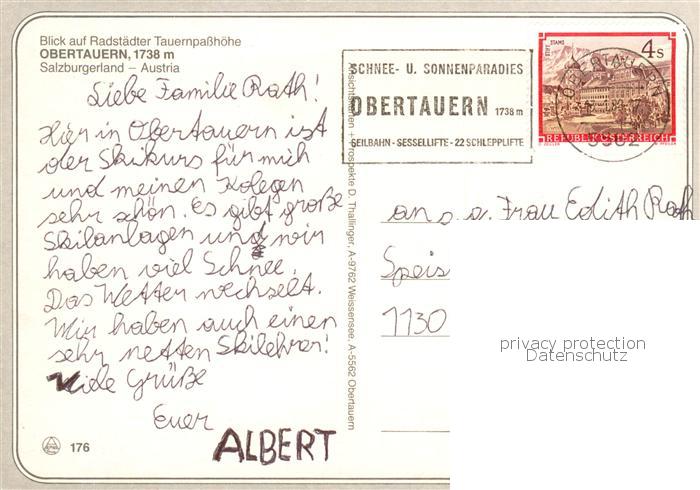 Blick auf Radstädter Tauernpaßhöhe
OBERTAUERN, 1738 m
Salzburgerland – Austria
Liebe Familie Rath!
Hier in Obertauern ist
der Skikurs für mich
und meinen Kolegen
sehr schön. Es gibt große
Skilanlagen und wir
haben viel Schnee.
Das Wetter wechselt.
Mir haben auch einen
sehr netten Skilehrer!
Viele Grüße
Euer
ALBERT
176
Ansichtskarten + Prospekte D. Thallinger, A-9762 Weissensee, A-5562 Obertauern
SCHNEE- U. SONNENPARADIES
OBERTAUERN 1738 m
SEILBAHN - SESSELLIFTE - 22 SCHLEPPLIFTE
4 S
REPUBLIK ÖSTERREICH
OBERTAUERN
5562
Frau Edith Rath
Speis
1130
privacy protection
Datenschutz